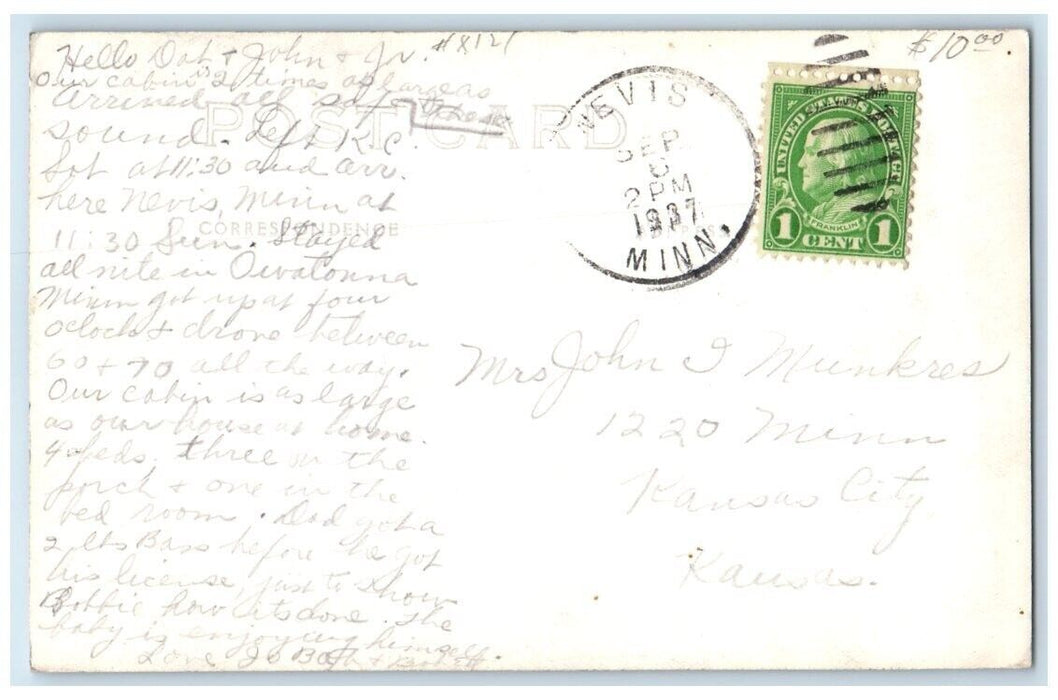 Hello Dot + John + Jr.
Our cabin is 2 times as large as
these
Arrived all safe +
sound. Left K.C.
Sat at 11:30 and arr.
here Nevis, Minn at
11:30 Sun. Stayed
all nite in Owatonna
Minn got up at four
oclock + drove between
60 + 70 all the way.
Our cabin is as large
as our house at home.
4 beds, three on the
porch + one in the
bed room. Dad got a
2 lbs Bass before he got
his license, just to show
Bobbie how its done. The
baby is enjoying himself.
Love
POST CARD
CORRESPONDENCE
$10.00
NEVIS
SEP
2 PM
1937
MINN.
UNITED STATES POSTAGE
FRANKLIN
1 CENT 1
Mrs John I Munkres
1220 Minn
Kansas City
Kansas.